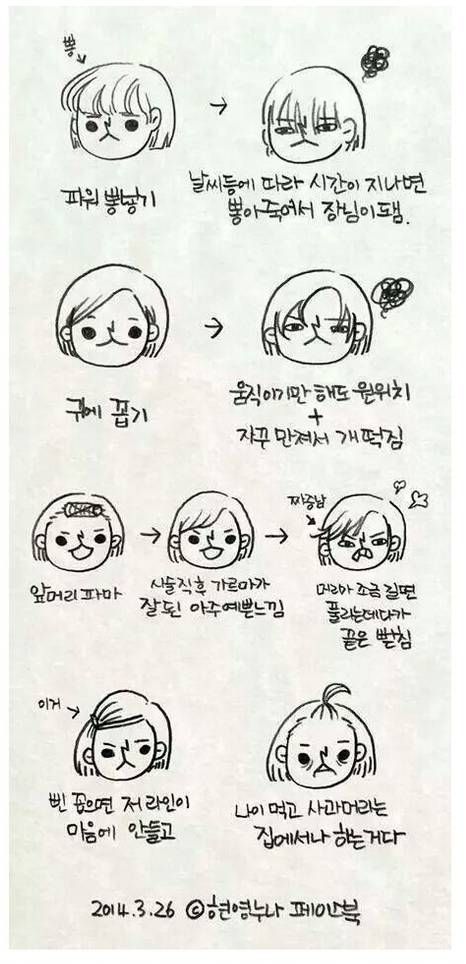 뽕
파워 뽕넣기
날씨등에 따라 시간이 지나면
뽕이죽어서 장님이됌.
귀에 꼽기
움직이기만 해도 원위치
+
자꾸 만져서 개떡짐
앞머리파마
시술직후 가르마가
잘된 아주예쁜느낌
짜증남
머리가 조금 길면
풀리는데다가
끝은 뻗침
이거
삔 꼽으면 저 라인이
마음에 안들고
나이 먹고 사과머리는
집에서나 하는거다
2014.3.26 ©현영누나 페이스북